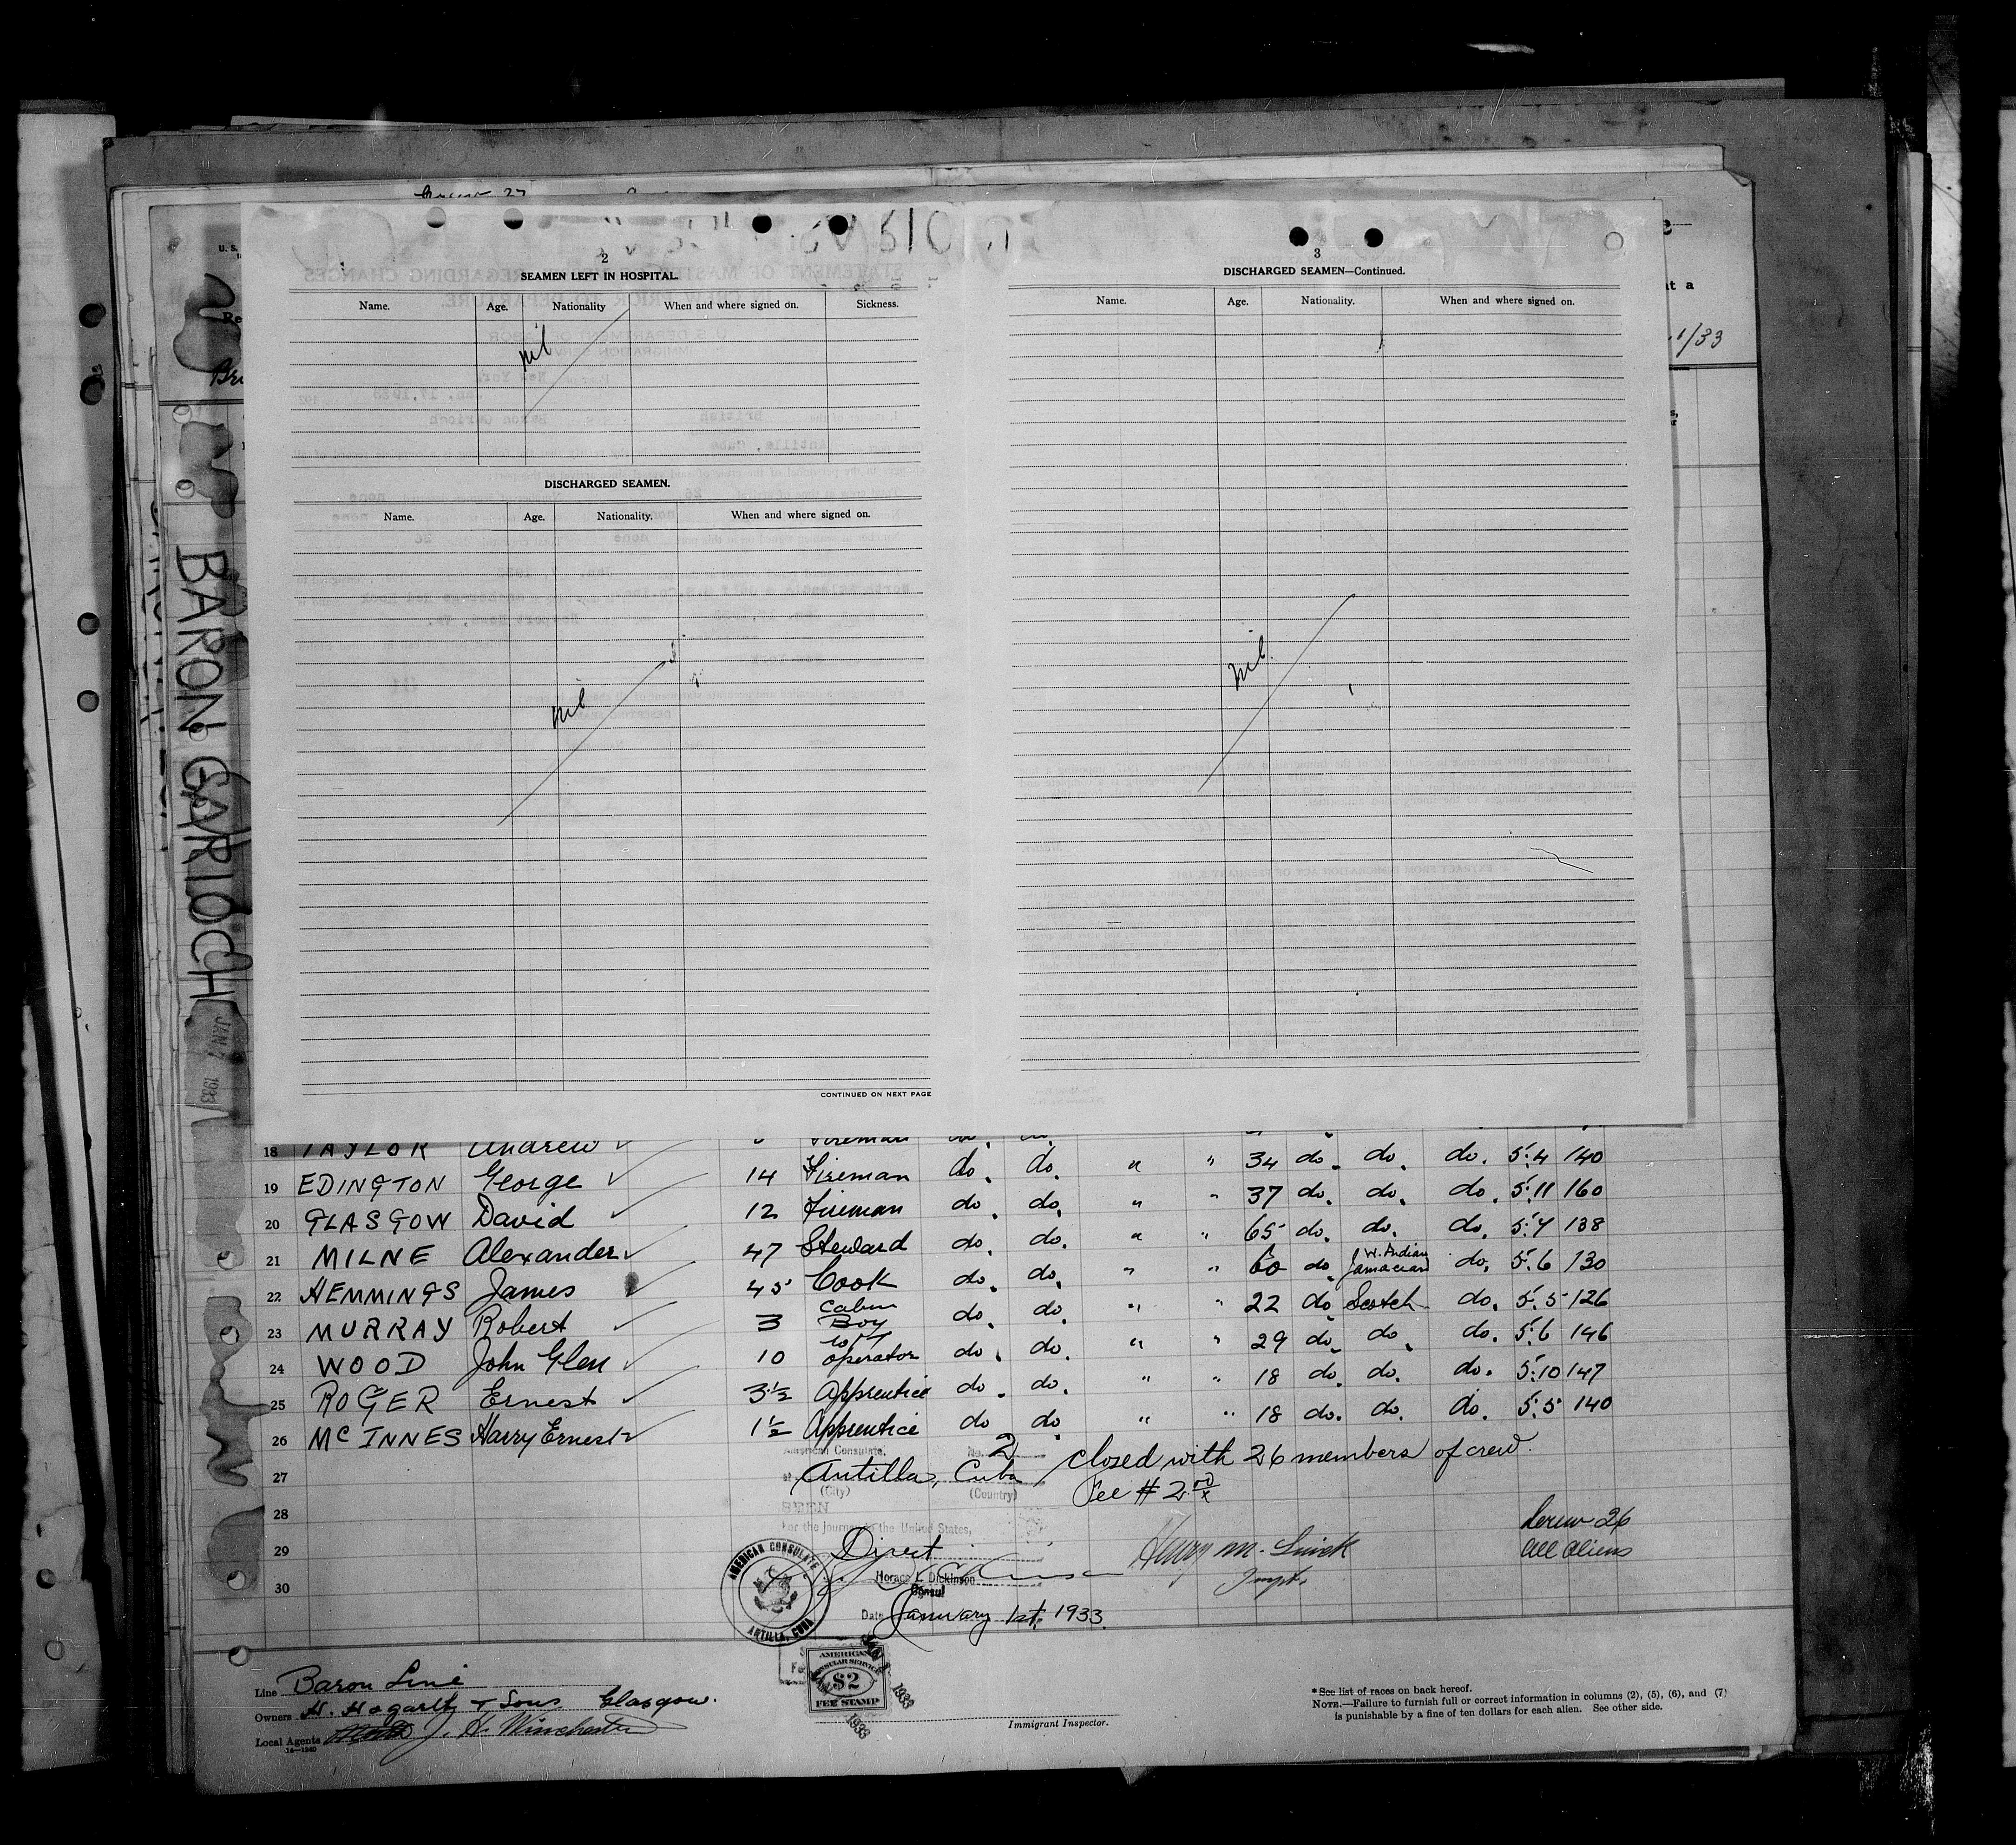 2
SEAMEN LEFT IN HOSPITAL.
Name. Age. Nationality When and where signed on. Sickness.
nil
DISCHARGED SEAMEN.
Name. Age. Nationality. When and where signed on.
nil
CONTINUED ON NEXT PAGE
3
DISCHARGED SEAMEN—Continued.
Name. Age. Nationality. When and where signed on.
nil.
1/33
BARON GARIOCH
JAN 7 1933
18 TAYLOR Andrew Fireman
19 EDINGTON George 14 Fireman do. do. " " 34 do. do. do. 5.4 140
20 GLASGOW David 12 Fireman do. do. " " 37 do. do. do. 5.11 160
21 MILNE Alexander 47 Steward do. do. " " 65 do. do. do. 5.7 138
22 HEMMINGS James 45 Cook do. do. " " 60 do. W. Indian Jamacian do. 5.6 130
23 MURRAY Robert 3 Cabin Boy do. do. " " 22 do Scotch do. 5.5 126
24 WOOD John Glen 10 operator do. do. " " 29 do. do. do. 5.6 146
25 ROGER Ernest 3½ Apprentice do. do. " " 18 do. do. do. 5.10 147
26 McINNES Harry Ernest 1½ Apprentice do do " " 18 do. do. do. 5.5 140
American Consulate, No. 2
27 Antilla, Cuba closed with 26 members of crew.
(City) (Country) Fee # 2.00
SEEN
28
For the journey to the United States,
Crew 26
29 Direct Henry M. all aliens
Horace L. Dickinson
30 Consul
Date January 1st, 1933.
AMERICAN CONSULATE
ANTILLA, CUBA
AMERICAN
CONSULAR SERVICE
$2
FEE STAMP
1933
1933
Line Baron Line
Owners H. Hogarth & Sons Glasgow.
Local Agents J. H. Winchester
14—1240
Immigrant Inspector.
*See list of races on back hereof.
NOTE.—Failure to furnish full or correct information in columns (2), (5), (6), and (7)
is punishable by a fine of ten dollars for each alien. See other side.